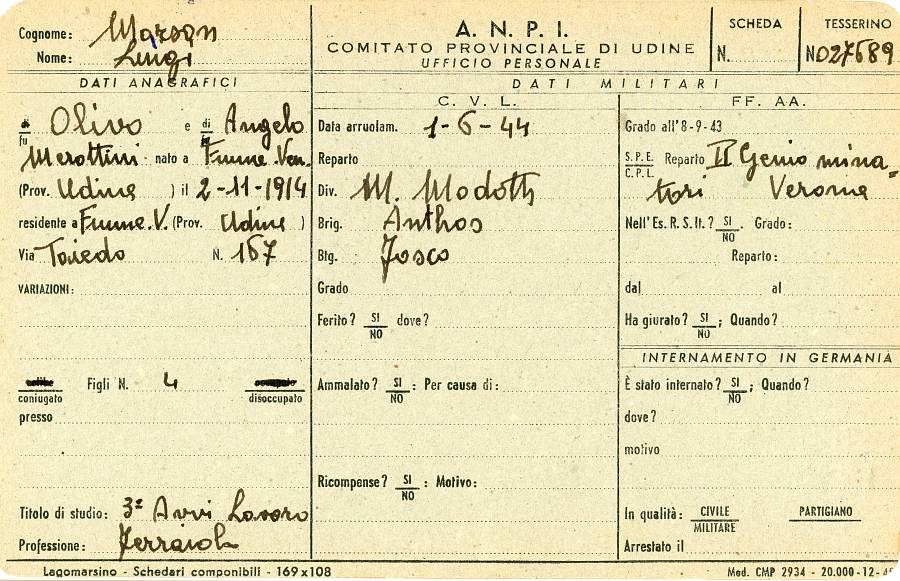 Cognome: Marson
Nome: Luigi
A. N. P. I.
COMITATO PROVINCIALE DI UDINE
UFFICIO PERSONALE
SCHEDA
N.
TESSERINO
N 027689
DATI ANAGRAFICI
di
fu Olivo e di Angelo
Merottini nato a Fiume Ven.
(Prov. Udine ) il 2-11-1914
residente a Fiume. V. (Prov. Udine )
Via N. 167
VARIAZIONI:
celibe
coniugato
Figli N. 4
occupato
disoccupato
presso
Titolo di studio: 3ª Avvi Lavoro
Professione:
DATI MILITARI
C. V. L.
Data arruolam. 1-6-44
Reparto
Div. M. Modotti
Brig. Anthos
Btg. Josco
Grado
Ferito? SI
NO dove?
Ammalato? SI
NO : Per causa di:
Ricompense? SI
NO : Motivo:
FF. AA.
Grado all'8-9-43
S.P.E.
C.P.L. Reparto II Genio mina-
tori Verona
Nell'Es. R. S. It.? SI
NO Grado:
Reparto:
dal al
Ha giurato? SI
NO ; Quando?
INTERNAMENTO IN GERMANIA
È stato internato? SI
NO ; Quando?
dove?
motivo
In qualità: CIVILE
MILITARE
PARTIGIANO
Arrestato il
Lagomarsino - Schedari componibili - 169x108
Mod. CMP 2934 - 20.000-12-45